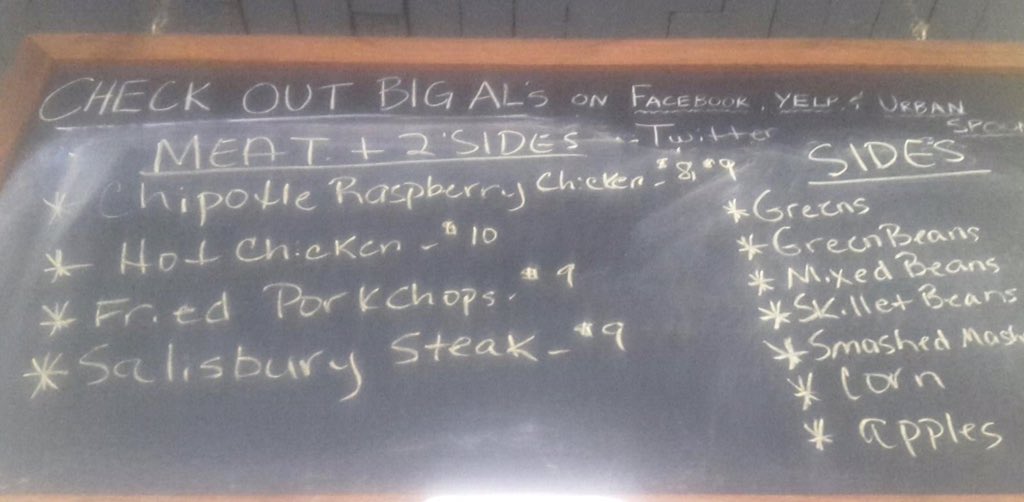 CHECK OUT BIG AL'S ON FACEBOOK, YELP, & URBAN
MEAT + 2 SIDES -- Twitter
* Chipotle Raspberry Chicken - $8, $9
* Hot Chicken - $10
* Fried PorkChops - $9
* Salisbury Steak - $9
SIDES
* Greens
* Green Beans
* Mixed Beans
* Skillet Beans
* Smashed Mash
* Corn
* apples